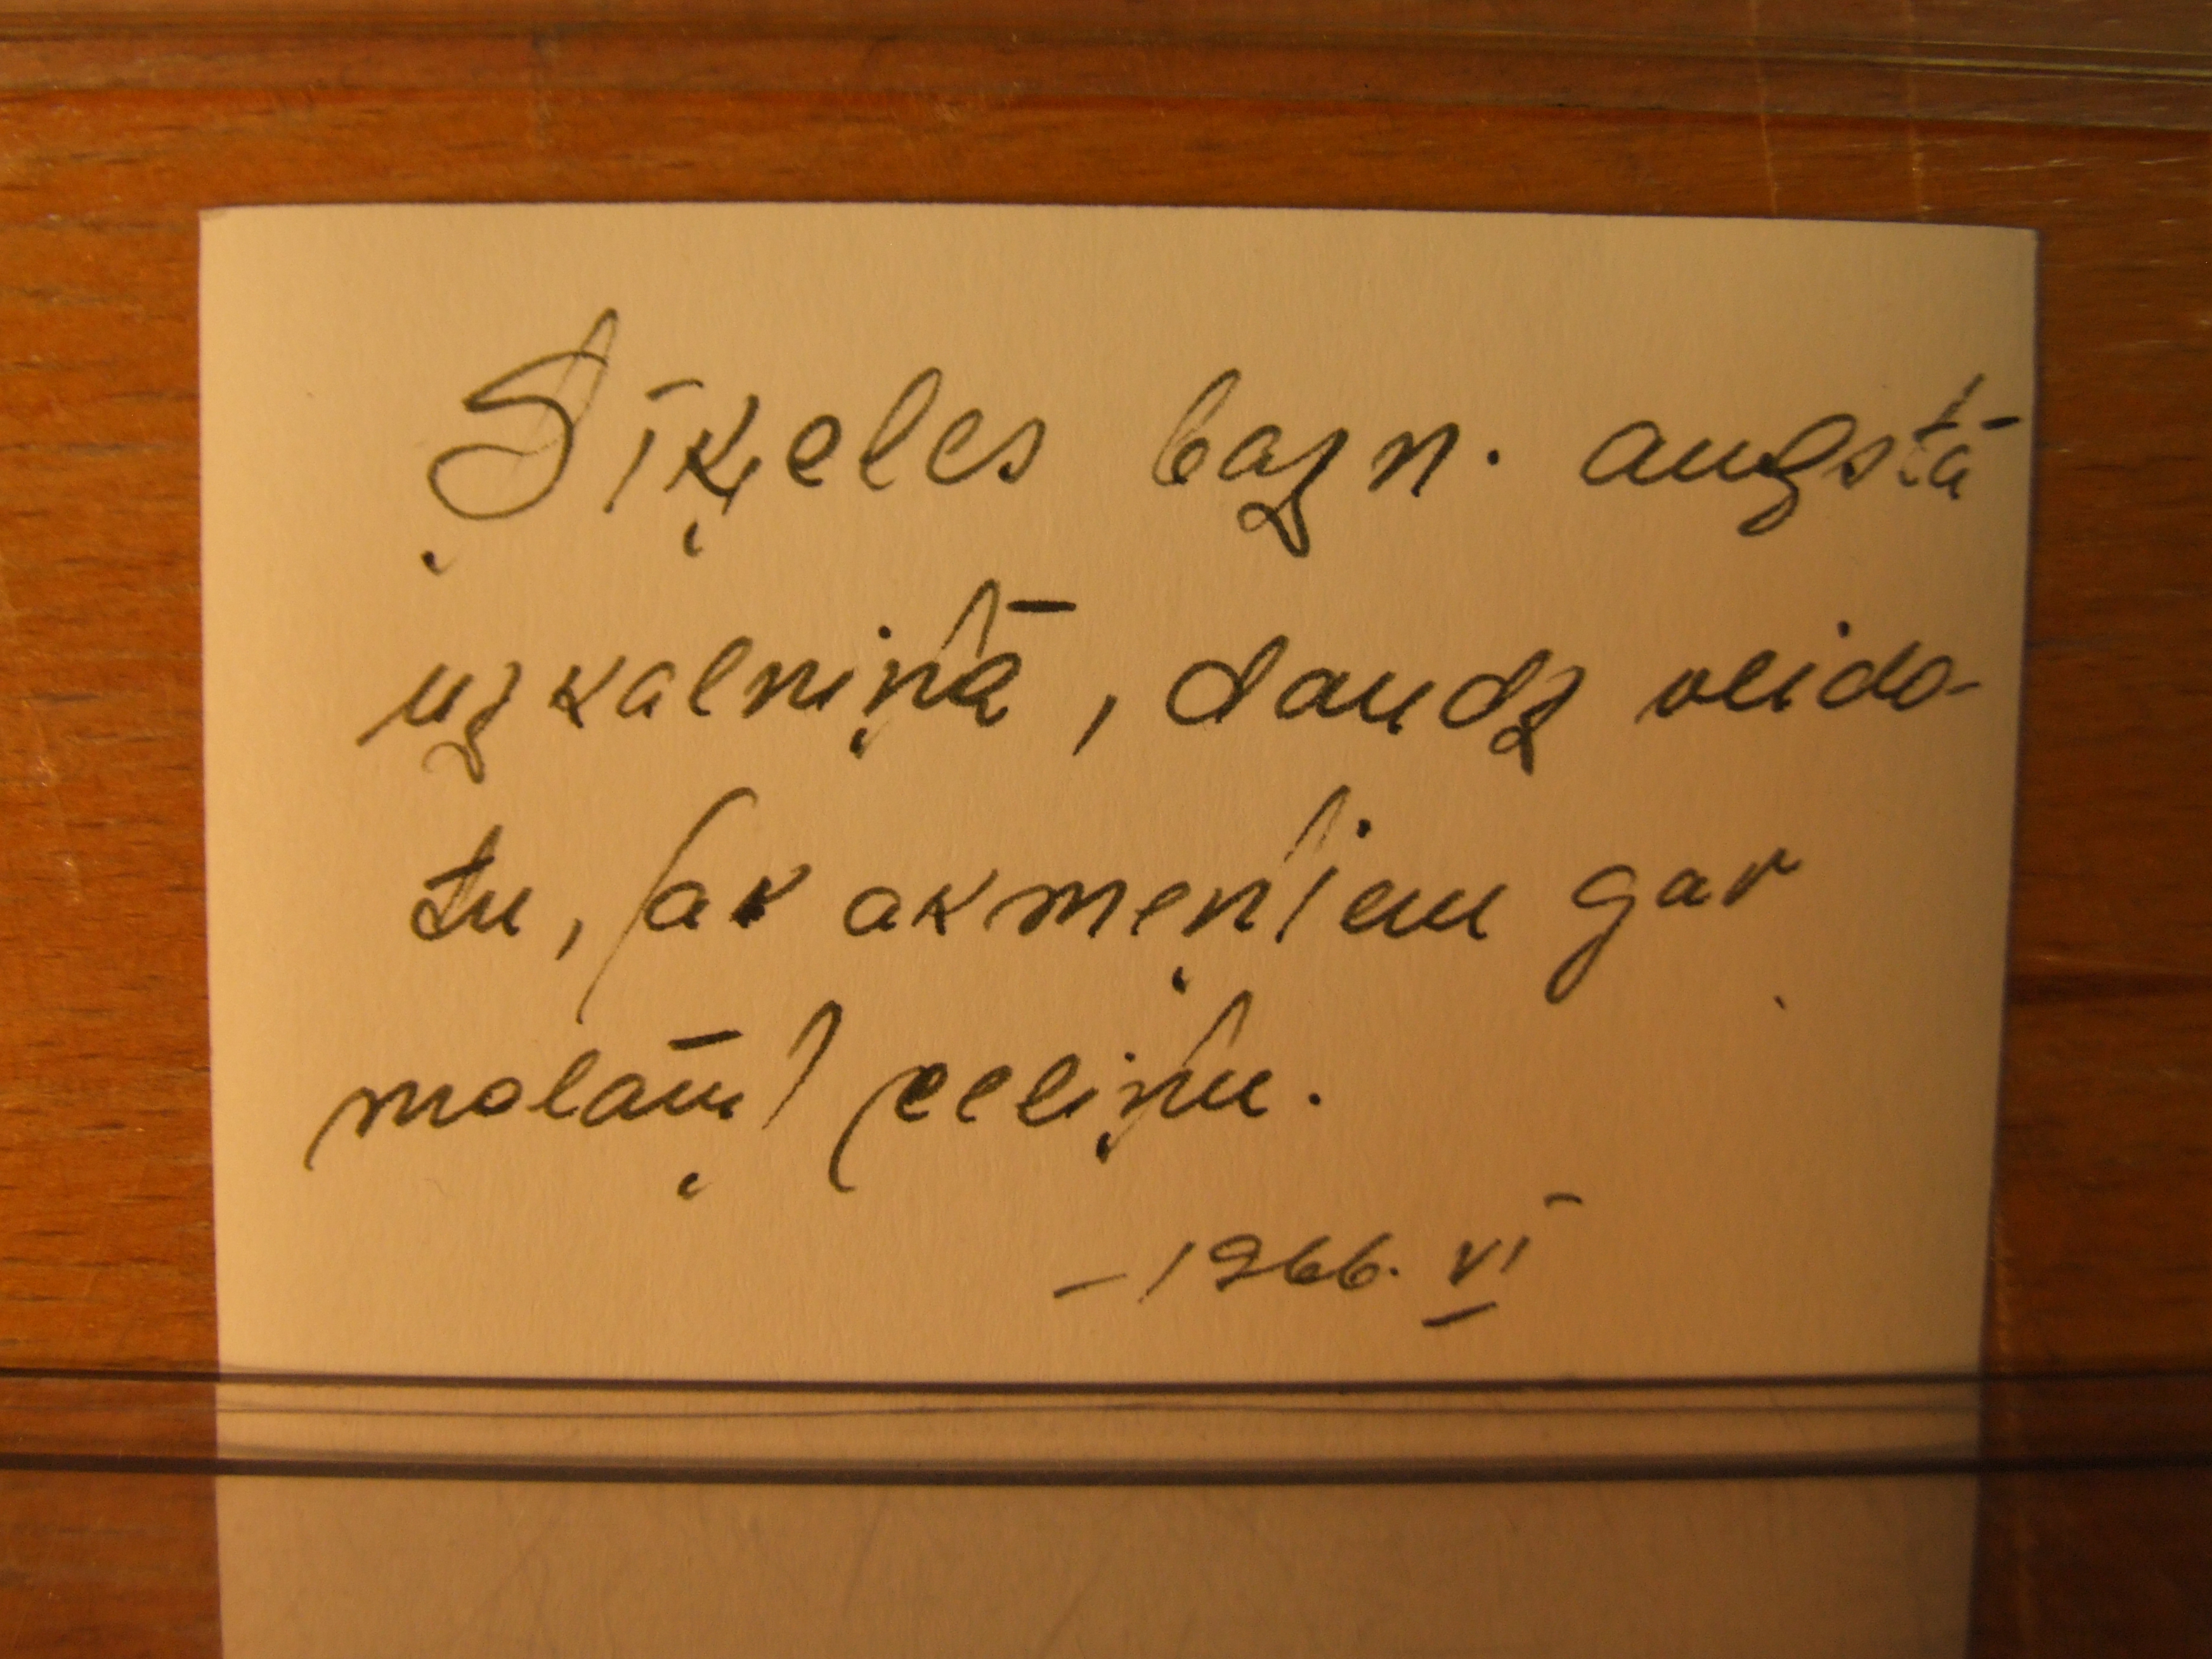 Sīķeles bazn. augstā
uzkalniņā, daudz veido-
tu, (ak akmeņiem gar
malām) celiņu.
– 1966. VI